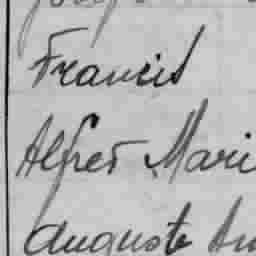 Francis
Alfret Mari
Auguste